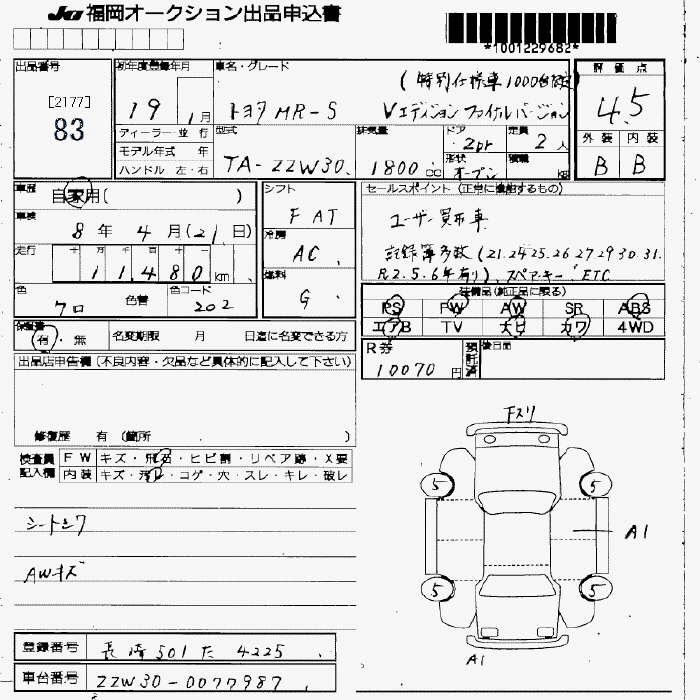 JU 福岡オークション出品申込書
*1001229682*
出品番号
[2177]
83
初年度登録年月
19 1月
ディーラー 並 行
モデル年式 年
ハンドル 左・右
車名・グレード
トヨタ MR-S
(特別仕様車1000台限定)
Vエディション ファイナルバージョン
型式
TA-ZZW30
排気量
1800 cc
ドア
2Dr
形状
オープン
定員
2人
積載
kg
評価点
4.5
外装 内装
B B
車歴
自家用( )
車検
8年 4月(21日)
走行
11480 km
色
クロ
色替
色コード
202
シフト
FAT
冷房
AC
燃料
G
セールスポイント (正常に機能するもの)
ユーザー買取車
記録簿多数(21.24.25.26.27.29.30.31.
R2.5.6年有り)、スペアキー、ETC
装備品(純正品に限る)
PS PW AW SR ABS
エアB TV ナビ カワ 4WD
保証書
有・無
名変期限 月 日迄に名変できる方
R券
10070円
預託済
後日品
出品店申告欄(不良内容・欠品など具体的に記入して下さい)
修復歴 有 (箇所 )
検査員記入欄
FW キズ・飛石・ヒビ割・リペア跡・X要
内装 キズ・汚レ・コゲ・穴・スレ・キレ・破レ
シートシワ
AWキズ
Fスリ
5 5
A1
5 5
A1
登録番号
長崎 501 た 4225
車台番号
ZZW30-0077987